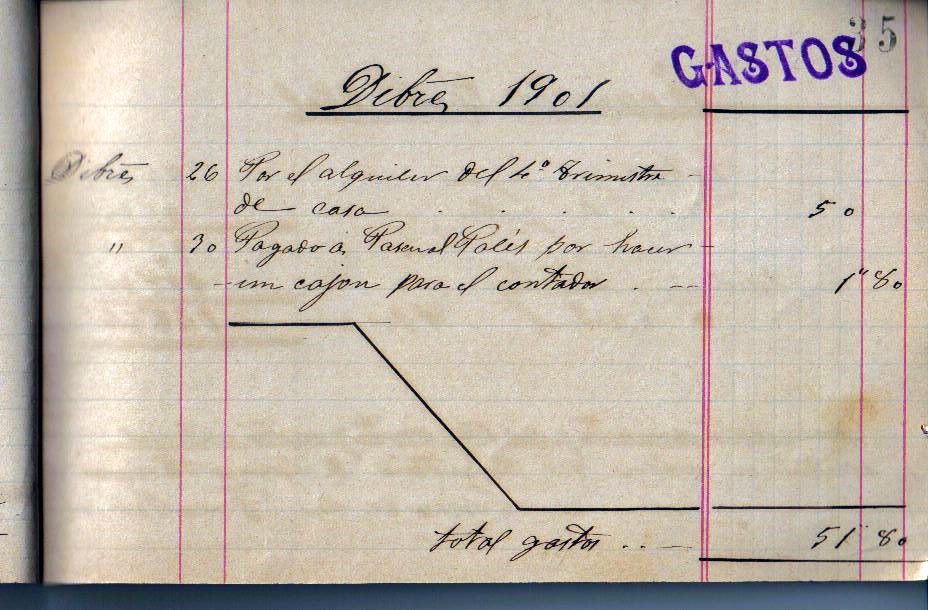 35
GASTOS
Dibre 1901
Dibre 26 Por el alquiler del 4º trimestre
de casa . . . . . . 50
" 30 Pagado á Pascual Palés por hacer
un cajon para el contador . -- 1"80
total gastos .. — 51"80